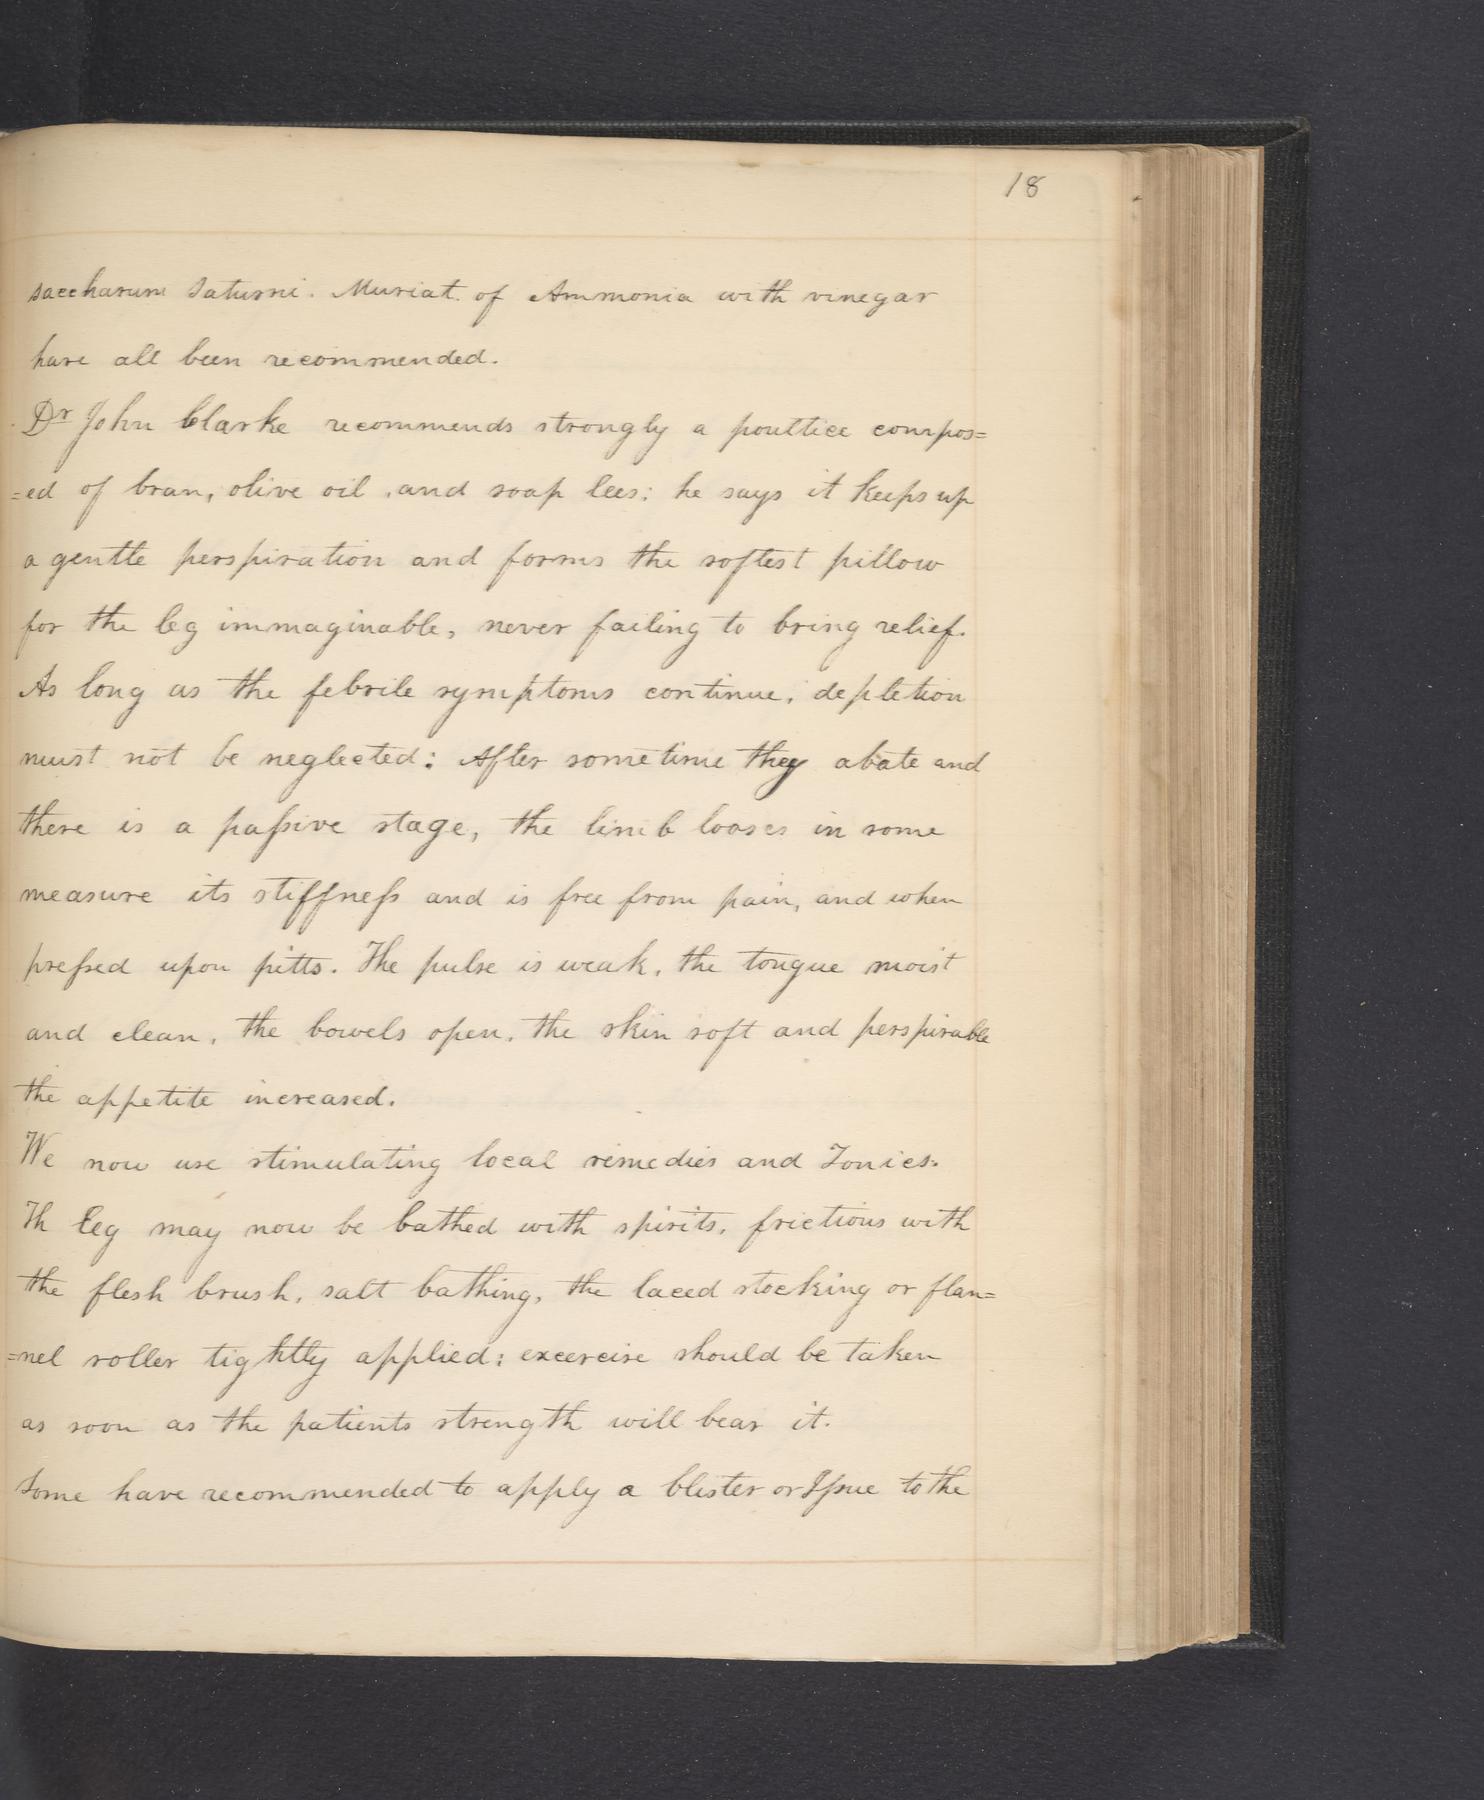 18
saccharum Saturni. Muriat. of Ammonia with vinegar
have all been recommended.
Dr John Clarke recommends strongly a poultice compos=
=ed of bran, olive oil, and soap lees; he says it keeps up
a gentle perspiration and forms the softest pillow
for the leg immaginable, never failing to bring relief.
As long as the febrile symptoms continue, depletion
must not be neglected: After sometime they abate and
there is a paſsive stage, the limb looses in some
measure its stiffneſs and is free from pain, and when
preſsed upon pitts. The pulse is weak, the tongue moist
and clean, the bowels open, the skin soft and perspirable
the appetite increased.
We now use stimulating local remedies and Tonics.
Th Leg may now be bathed with spirits, frictions with
the flesh brush, salt bathing, the laced stocking or flan=
=nel roller tightly applied; excercise should be taken
as soon as the patients strength will bear it.
Some have recommended to apply a blister or Iſsue to the